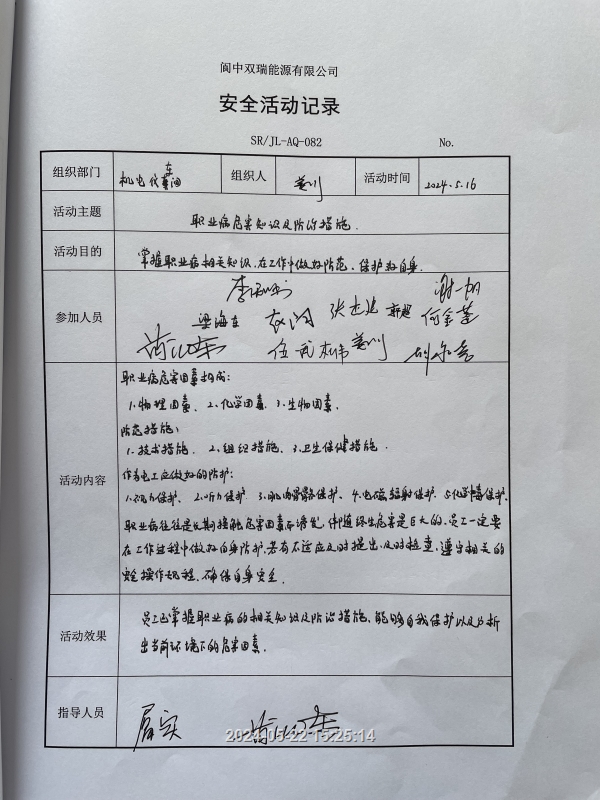 阆中双瑞能源有限公司
安全活动记录
SR/JL-AQ-082 No.
组织部门 机电仪车间 组织人 活动时间 2024.5.16
活动主题 职业病危害知识及防治措施.
活动目的 掌握职业病相关知识,在工作中做好防范、保护好自身.
参加人员
梁海东 何金莲
伍武
活动内容
职业病危害因素构成:
1.物理因素、2.化学因素、3.生物因素.
防范措施:
1.技术措施. 2.组织措施. 3.卫生保健措施.
作为电工应做好的防护:
1.视力保护、2.听力保护、3.肌肉骨骼保护、4.电磁辐射保护、5.化学毒保护.
职业病往往是长期接触危害因素而诱发,伴随终生危害是巨大的.员工一定要
在工作过程中做好自身防护,若有不适应及时提出、及时检查,遵守相关的
安全操作规程,确保自身安全.
活动效果
员工已掌握职业病的相关知识及防治措施、能够自我保护以及分析
出当前环境下的危害因素.
指导人员
2024-05-22 15:25:14